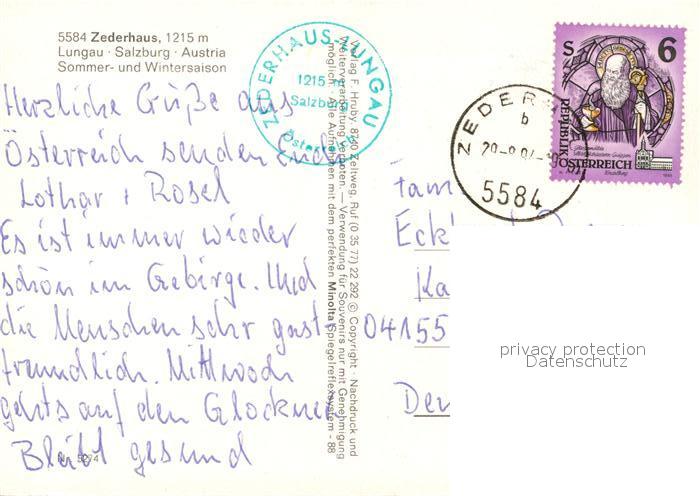 5584 Zederhaus, 1215 m
Lungau · Salzburg · Austria
Sommer- und Wintersaison
ZEDERHAUS-LUNGAU
1215 m
Salzburg
Österreich
Herzliche Grüße aus
Österreich senden Euch
Lothar + Rosel
Es ist immer wieder
schön im Gebirge. Und
die Menschen sehr gast-
freundlich. Mittwoch
gehts auf den Glockner
Bleibt gesund
Nr. 5274
Verlag F. Hruby, 8740 Zeltweg, Ruf (0 35 77) 22 292 © Copyright · Nachdruck und
Weiterverarbeitung verboten. — Verwendung für Souvenirs nur mit Genehmigung
möglich · Alle Aufnahmen mit dem perfekten Minolta Spiegelreflexsystem - 88
S 6
REPUBLIK
ÖSTERREICH
ZEDER
b
5584
Fam
Eck
Ka
04155
privacy protection
Datenschutz